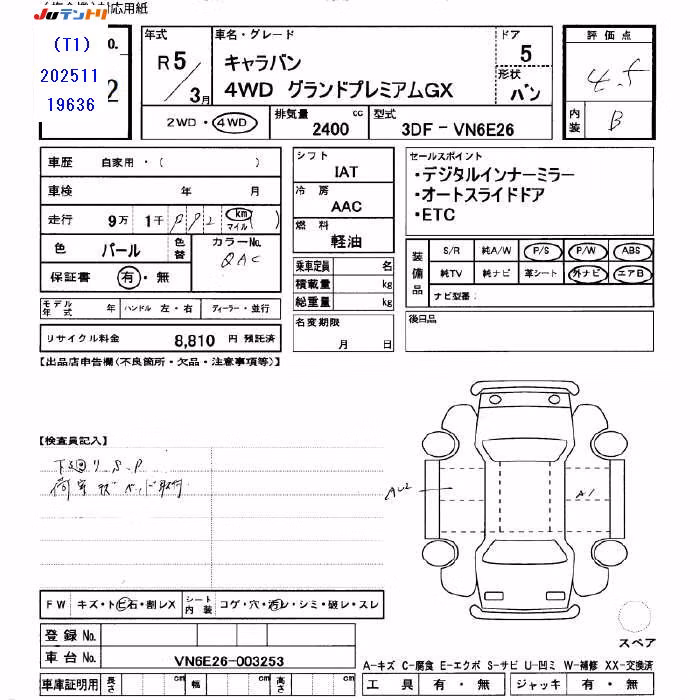 Juテントリ
対応用紙
(T1)
202511
19636
No.
2
年式
R5/3月
車名・グレード
キャラバン
4WD グランドプレミアムGX
ドア
5
形状
バン
評価点
4.5
内装
B
2WD・4WD
排気量
2400
cc
型式
3DF-VN6E26
車歴 自家用・( )
車検 年 月
走行 9万 1千
km
マイル
( )
色 パール
色替
カラーNo.
QAC
保証書 有・無
シフト
IAT
冷房
AAC
燃料
軽油
乗車定員 名
積載量 kg
総重量 kg
セールスポイント
・デジタルインナーミラー
・オートスライドドア
・ETC
装備品
S/R 純A/W P/S P/W ABS
純TV 純ナビ 革シート 外ナビ エアB
ナビ型番:
モデル年式 年
ハンドル 左・右
ディーラー・並行
リサイクル料金 8,810 円 預託済
名変期限
月 日
後日品
【出品店申告欄(不良箇所・欠品・注意事項等)】
【検査員記入】
下廻り S.P
荷室ズ ベッド取付
AU2
A1
FW キズ・トビ石・割レX
シート内装 コゲ・穴・汚レ・シミ・破レ・スレ
登録No.
車台No. VN6E26-003253
車庫証明用 長さ cm 幅 cm 高さ cm
スペア
A-キズ C-腐食 E-エクボ S-サビ U-凹ミ W-補修 XX-交換済
工具 有・無 ジャッキ 有・無